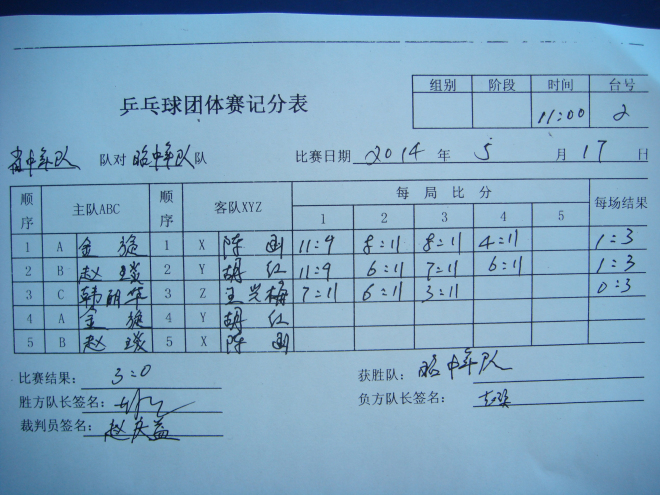 组别 阶段 时间 台号
乒乓球团体赛记分表
11:00 2
中年队 队对 昭中年队 队 比赛日期 2014 年 5 月 17 日
顺序 主队ABC 顺序 客队XYZ 每局比分 每场结果
1 2 3 4 5
1 A 金旋 1 X 陈 11:9 8:11 8:11 4:11 1:3
2 B 赵瑛 2 Y 胡红 11:9 6:11 7:11 6:11 1:3
3 C 韩丽华 3 Z 王兴梅 7:11 6:11 3:11 0:3
4 A 金旋 4 Y 胡红
5 B 赵瑛 5 X 陈
比赛结果: 3:0 获胜队: 昭中年队
胜方队长签名: 负方队长签名:
裁判员签名: 赵庆益